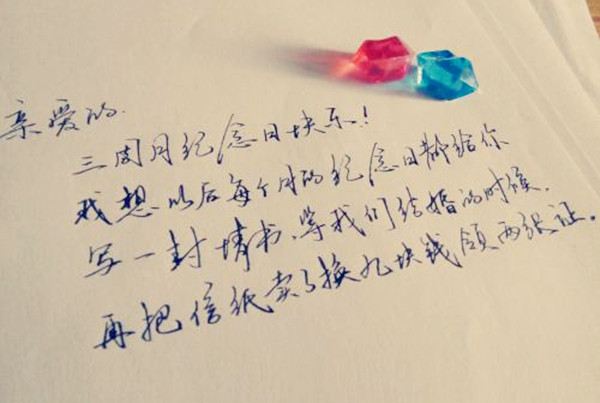 亲爱的.
三周月纪念日快乐!
我想以后每个月的纪念日都给你
写一封情书、等我们结婚的时候.
再把信纸卖了换九块钱领两张证.